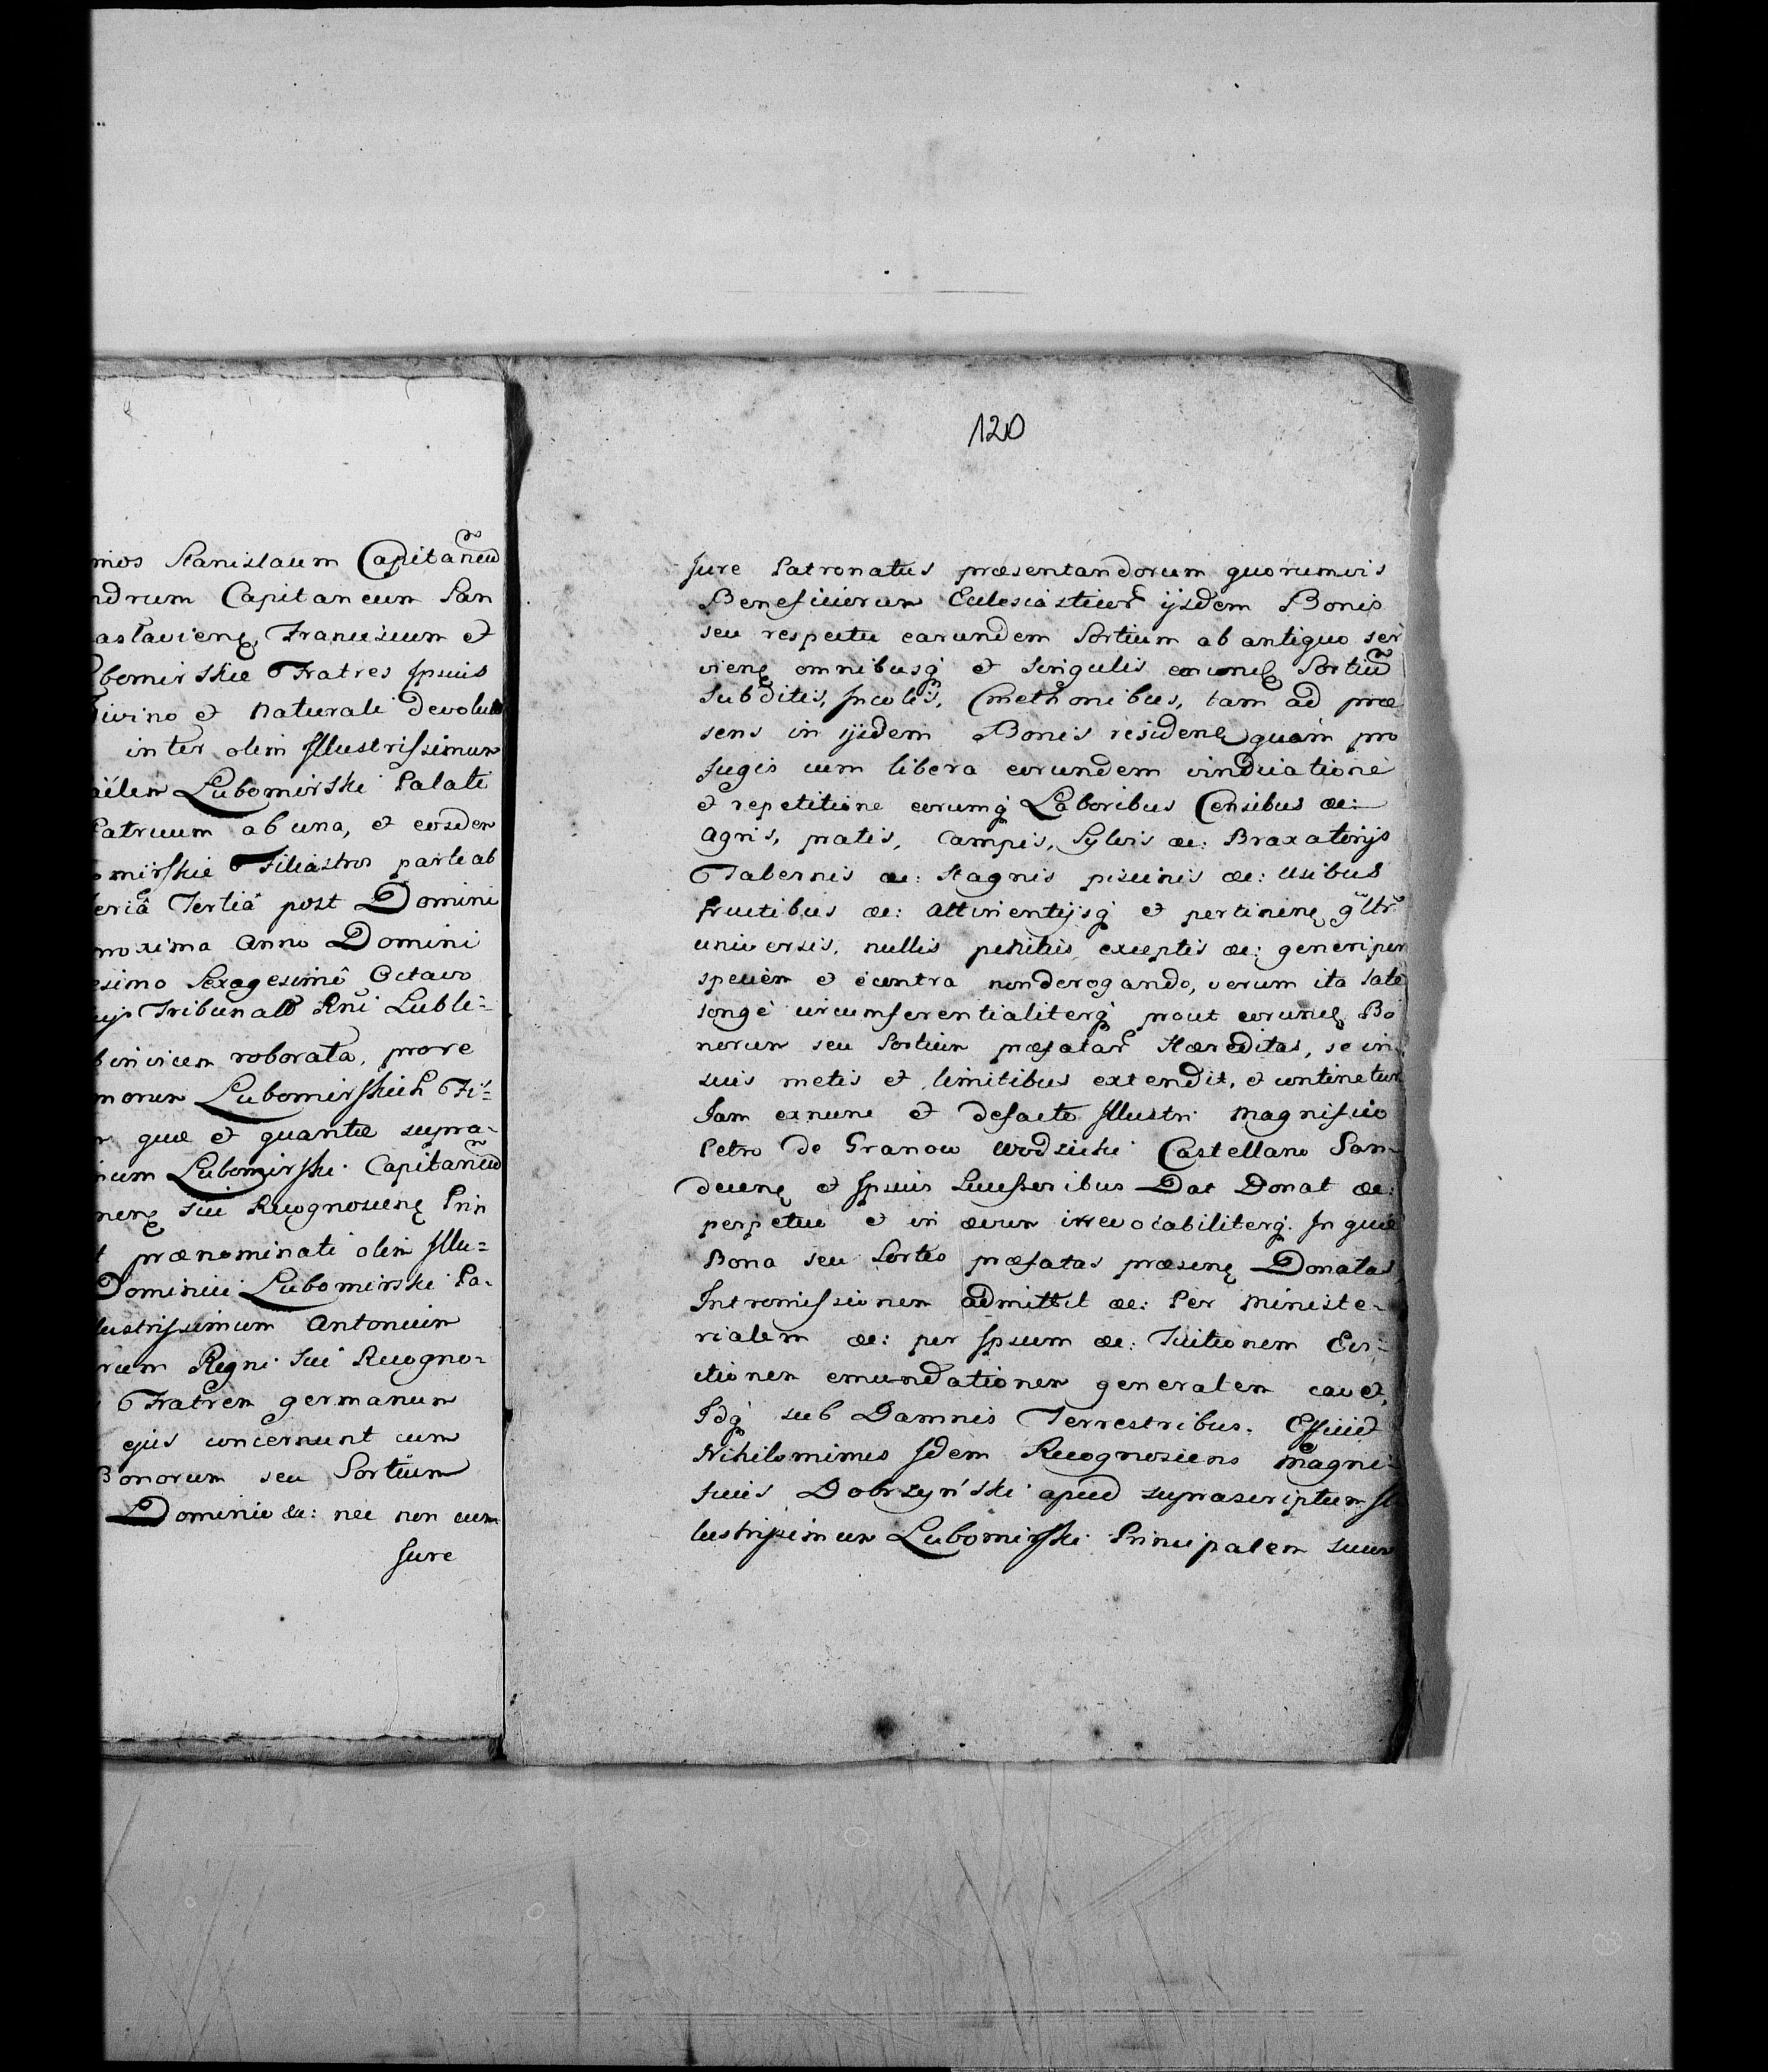 mos Stanislaum Capitaneũ
ndrum Capitaneum San
aslavienς, Franciscum et
bomirskie Fratres Ipsius
Divino et Naturali devolut
inter olim Illustrissimum
Lubomirski Palati
Patruum ab una, et eosdem
omirskie Filiastros parte ab
feriâ Tertiâ post Domini
proxima Anno Domini
esimo Sexagesimô Octavo
Tribunalῦ Rni Lubli=
binvicem roborata, prove
morum Lubomirskich Fi=
quæ et quantæ supra-
num Lubomirski Capitaneũ
nenς sui Recognoscenς Prin
t prænominati olim Illu=
Dominici Lubomirski Pa-
lustrissimum Antonium
rum Regni sui Recogno=
Fratrem germanum
ejus concernunt cum
Bonorum seu Sortium
Dominio &: nec non cum
Jure
120
Jure Patronatus præsentandorum quorumvis
Beneficiorum Ecclesiasticor ijsdem Bonis
seu respectu earundem Sortium ab antiquo ser
vienς omnibusq et singulis Sortiũ
Subditis, Incolis, Cmethonibus, tam ad præ
sens in ijsdem Bonis residenς quàm pro
fugis cum libera eorundem vindicatione
et repetitione eorumq Laboribus Censibus &:
Agris, pratis, Campis, Sylvis &: Braxatorijs
Tabernis &: Stagnis piscinis &: Usibus
fructibus &: Attinentijsq et pertinenς gnltr
universis, nullis penitus exceptis &: generi per
speciem et è contra non derogando, verum ita late
longè circumferentialiterq prout eorunς Bo
norum seu Sortium præfatar Hæreditas, se in
suis metis et limitibus extendit, et continetur
Iam exnunc et defacto Illustri Magnifico
Petro de Granow Wodzicki Castellano San-
decenς et Ipsius Successoribus Dat Donat &:
perpetuè et in ævum irrevocabiliterq. In quæ
Bona seu Sortes præfatas præsenς Donatas
Intromissionem admittit &: Per Ministe-
rialem &: per Ipsum &: Tuitionem Evi=
ctionem emundationem generalem cavet,
Idq sub Damnis Terrestribus. Efficiet
Nihilominus Idem Recognoscens Magni=
ficus Dobrzyński apud suprascriptum Il
lustrissimum Lubomirski Principalem suum